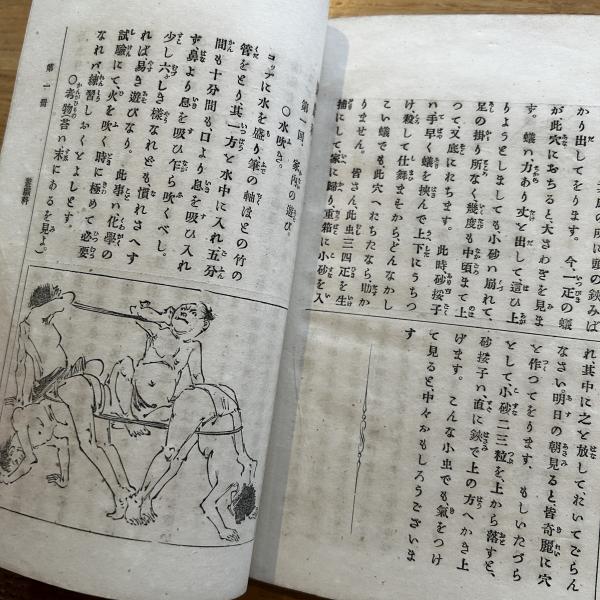 かり出してをります。 今、一疋の蟻
が此穴におちると、大さわぎを見ま
す。 蟻ハ力あり丈と出して這ひ上
りようとしましても、小砂ハ崩れて、
足の掛り所なく、幾度も中頃まて上
つて又底にれちます。 此時砂挼子
ハ手早く蟻を挾んて、上下にうちつ
け殺して仕舞ますからどんなかし
こい蟻でも、此穴へれちたなら、助か
りません。 皆さん、此虫三四疋を生
捕にして、家に歸り、重箱に小砂を入
れ、其中に之と放して、れいてごらん
なさい、明日の朝見ると、皆奇麗に穴
と作つてをります。 もしいたづら
として、小砂二三粒を上から落すと、
砂挼子ハ、直に鋏で上の方へかき上
げます。 こんな小虫でも、氣をつけ
て見ると、中々かもしろうございま
す
第一回、 案内の遊び
〇水吹き。
コップに水を盛り、筆の軸ほとの竹の
管をとり、其一方と水中に入れ、五分
間も十分間も、口より息を吸ひ入れ
ず、鼻より息を吸ひ乍ら吹くべし。
少し六しき様なれども、慣れさへす
れば易き遊びなり。 此事ハ化學の
試驗にて、火を吹く時に極めて必要
なれバ、練習しおくとよしとす。
〇考物(荅ハ末にあるを見よ。)
第一册